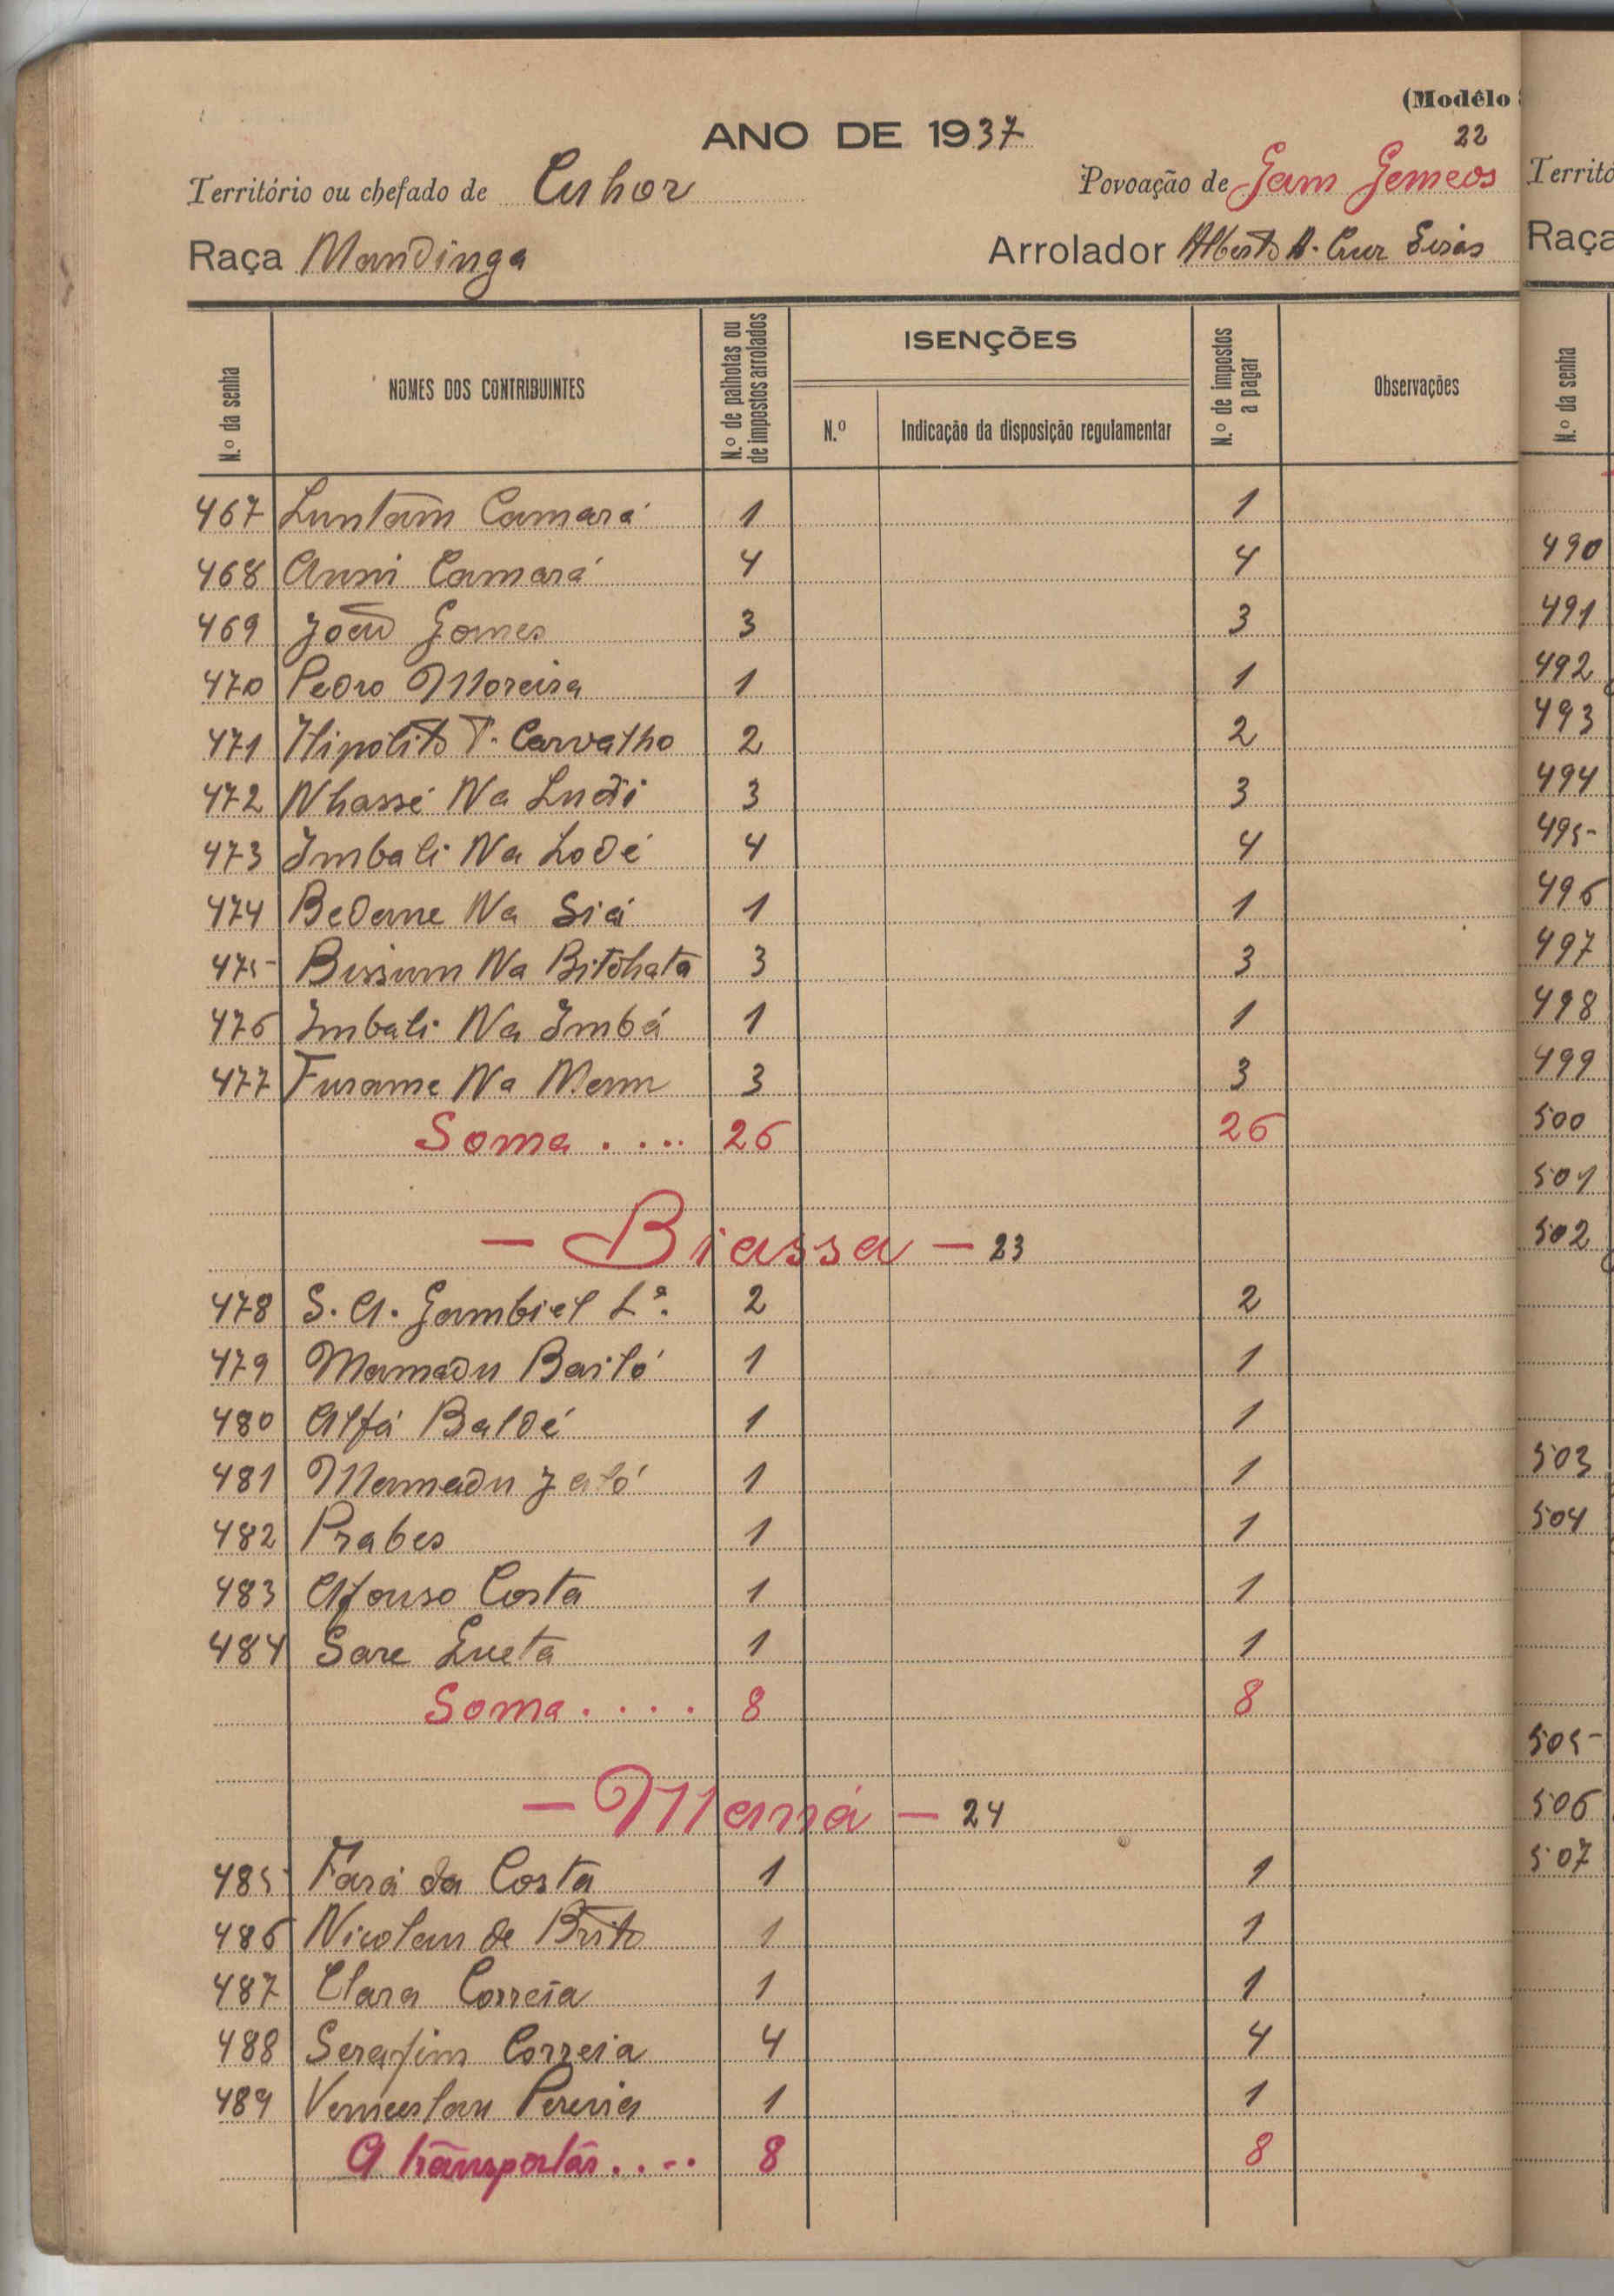 (Modêlo
ANO DE 1937
22
Território ou chefado de Cuhor
Povoação de Gam Gemeos
Raça Mandinga
Arrolador Alberto A. Cruz
N.º da senha
NOMES DOS CONTRIBUINTES
N.º de palhotas ou de impostos arrolados
ISENÇÕES
N.º
Indicação da disposição regulamentar
N.º de impostos a pagar
Observações
467 Luntam Camará 1 1
468 Anni Camará 4 4
469 João Gomes 3 3
470 Pedro Moreira 1 1
471 Hipolito T. Carvalho 2 2
472 Nhassé Na Ludi 3 3
473 Imbali Na Lodé 4 4
474 Bedame Na Siá 1 1
475 Bissum Na Bitchata 3 3
476 Imbali Na Imbá 1 1
477 Furame Na Menn 3 3
Soma .... 26 26
- Biassa - 23
478 S. A. Gambiel L.ª 2 2
479 Mamadu Bailó 1 1
480 Alfá Baldé 1 1
481 Mamadu Jaló 1 1
482 Prabes 1 1
483 Afonso Costa 1 1
484 Sare Gueta 1 1
Soma .... 8 8
- Maná - 24
485 Fará da Costa 1 1
486 Nicolau de Brito 1 1
487 Clara Correia 1 1
488 Serafim Correia 4 4
489 Venceslau Pereira 1 1
A transportar.... 8 8
Territó
Raça
N.º da senha
490
491
492
493
494
495
496
497
498
499
500
501
502
503
504
505
506
507